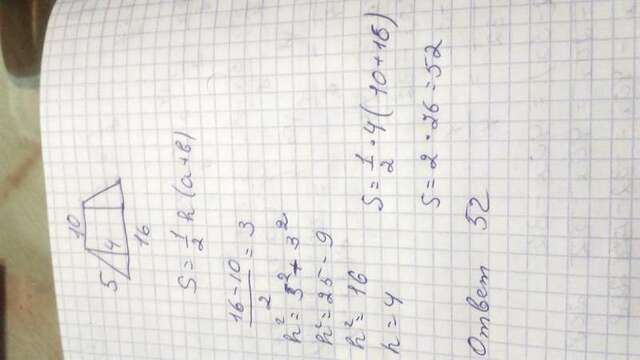 10
5 4
16
S = 1/2 h (a+b)
16-10/2 = 3
h² = 5² + 3²
h² = 25 - 9
h² = 16
h = 4
S = 1/2 · 4 (10+16)
S = 2 · 26 = 52
Ответ 52